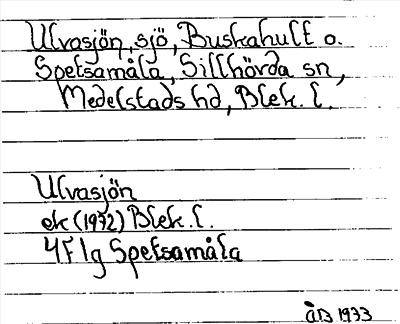 Ulvasjön, sjö, Buskahult o.
Spetsamåla, Sillhövda sn,
Medelstads hd, Blek. l.
Ulvasjön
ek (1972) Blek. l.
4F 1g Spetsamåla
ÅB 1973